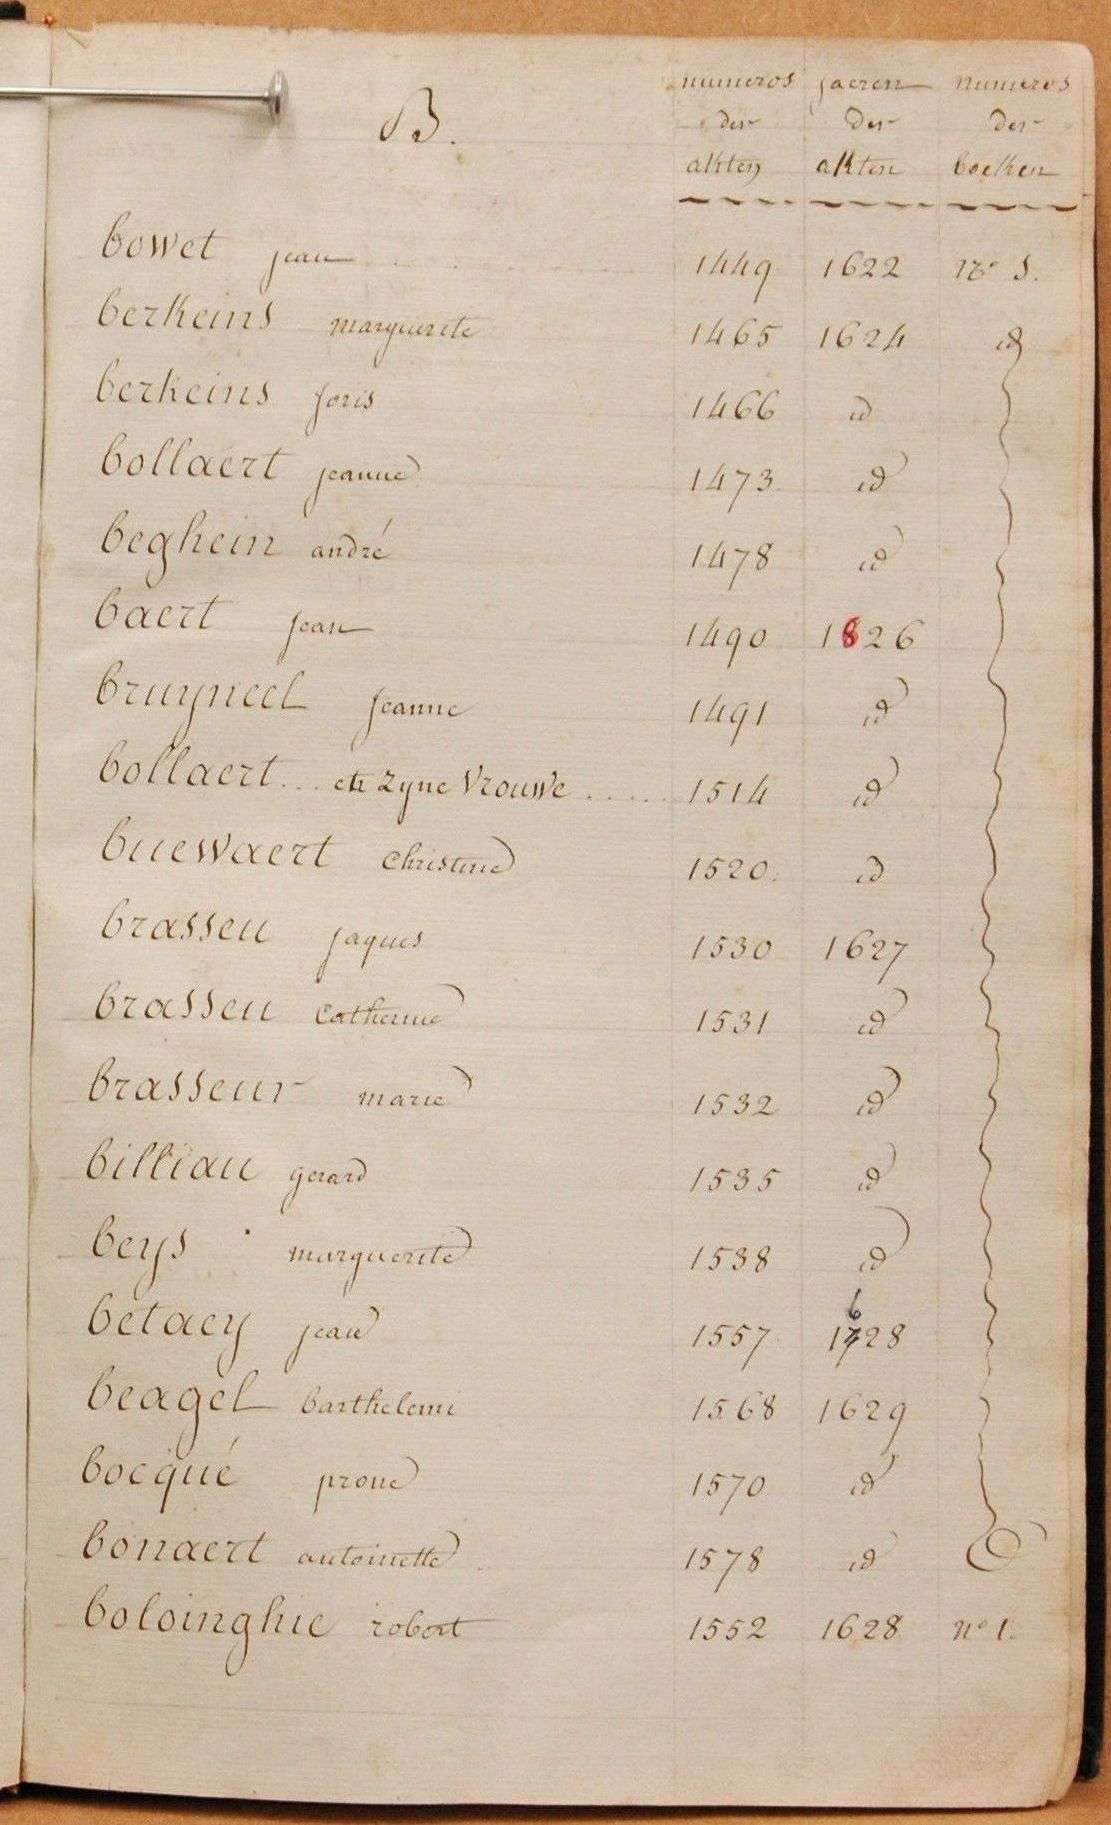 B.
numeros jaeren numeros
der der der
akten akten boeken
bowet jean 1449 1622 no S.
berkeins marguerite 1465 1624 id
berkeins joris 1466 id
bollaert jeanne 1473 id
beghein andré 1478 id
baert jean 1490 1826
bruyneel jeanne 1491 id
bollaert... et zyne vrouwe ..... 1514 id
buewaert christine 1520. id
brasseu jaques 1530 1627
brasseu catherine 1531 id
brasseur marie 1532 id
billiau gerard 1535 id
beys marguerite 1538 id
6
betaey jean 1557 1728
beagel barthelemi 1568 1629
bocqué prone 1570 id
bonaert antoinette 1578 id
boloinghie robert 1552 1628 no 1.